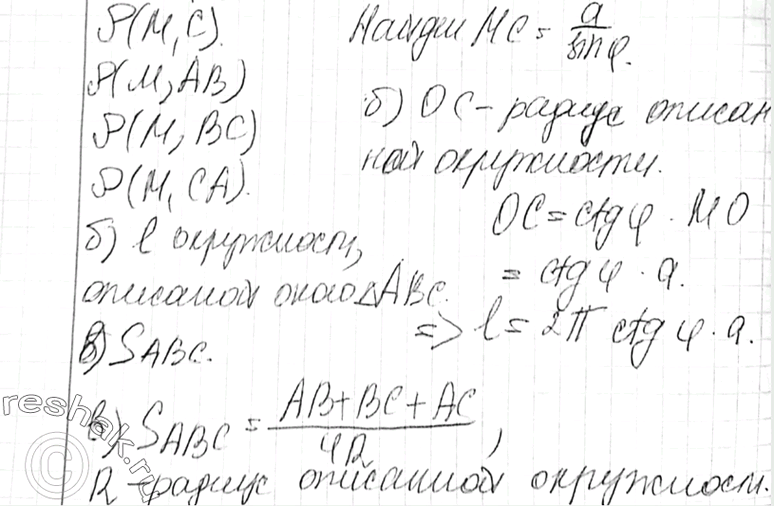 P(M, C).
P(M, AB)
P(M, BC)
P(M, CA).
б) l окружности,
описаной около △ABC.
в) S_ABC.
Найдем MC = a/sin φ.
б) OC – радиус описан
ной окружности.
OC = ctg φ · MO
= ctg φ · a.
=> l = 2π ctg φ · a.
в) S_ABC = (AB + BC + AC)/4R,
R – радиус описанной окружности.
reshak.ru